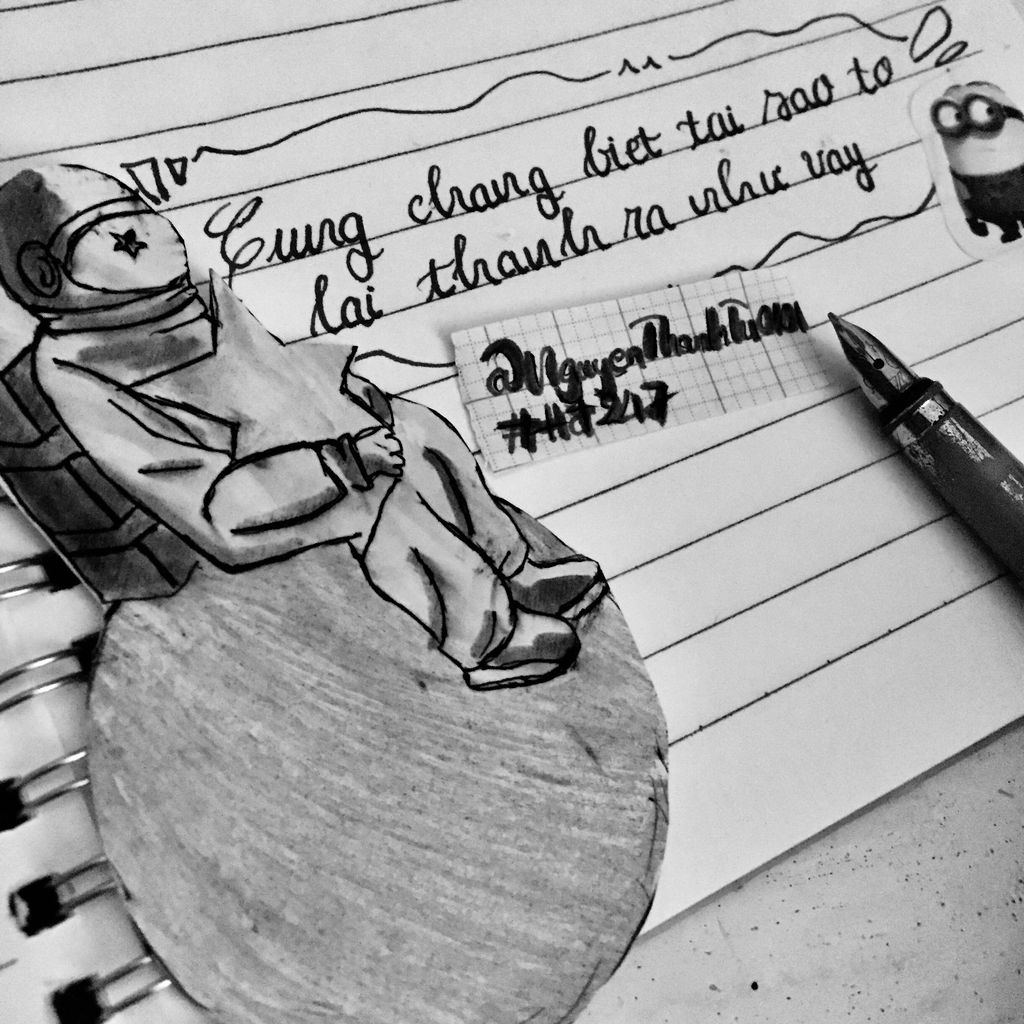 Cung chang biet tai sao to
lai thanh ra nhu vay
@NguyenThanhTuan